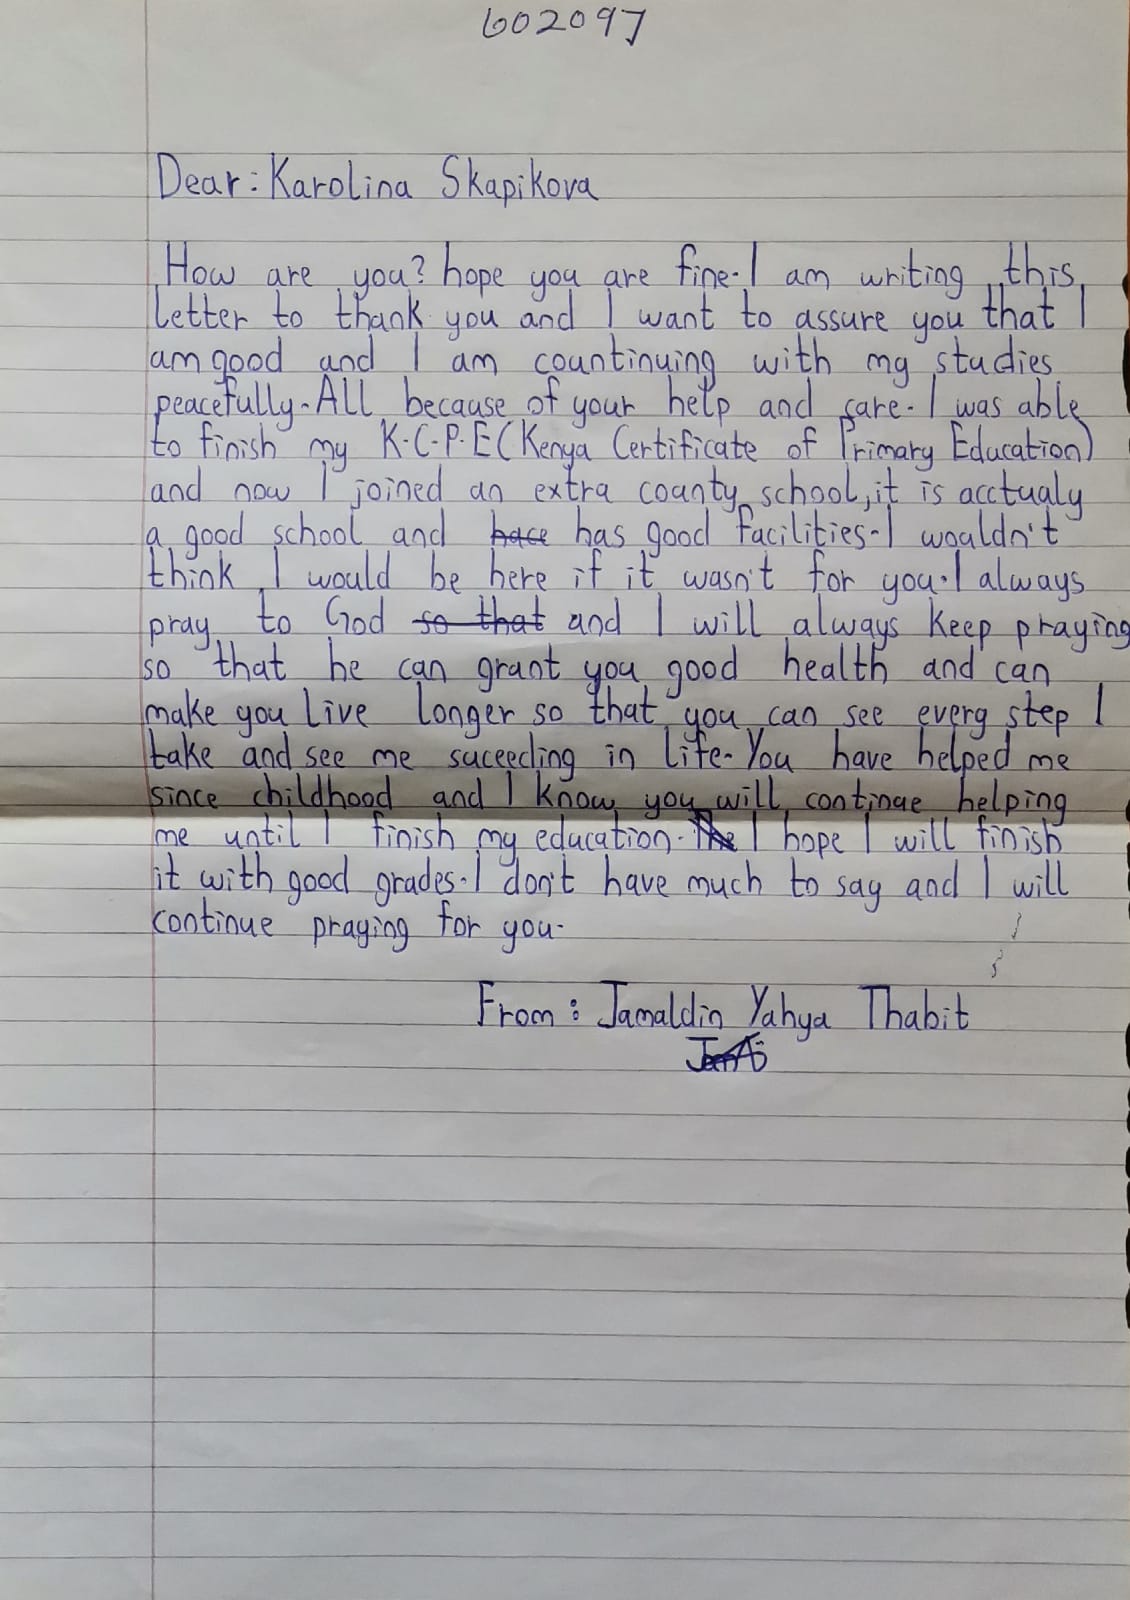 602097
Dear: Karolina Skapikova
How are you? hope you are fine. I am writing this
letter to thank you and I want to assure you that I
am good and I am countinuing with my studies
peacefully. All because of your help and care. I was able
to finish my K.C.P.E (Kenya Certificate of Primary Education)
and now I joined an extra county school, it is acctualy
a good school and has good facilities. I wouldn't
think I would be here if it wasn't for you. I always
pray to God so that and I will always keep praying
so that he can grant you good health and can
make you live longer so that you can see every step I
take and see me suceeding in life. You have helped me
since childhood and I know you will continue helping
me until I finish my education. I hope I will finish
it with good grades. I don't have much to say and I will
continue praying for you.
From: Jamaldin Yahya Thabit